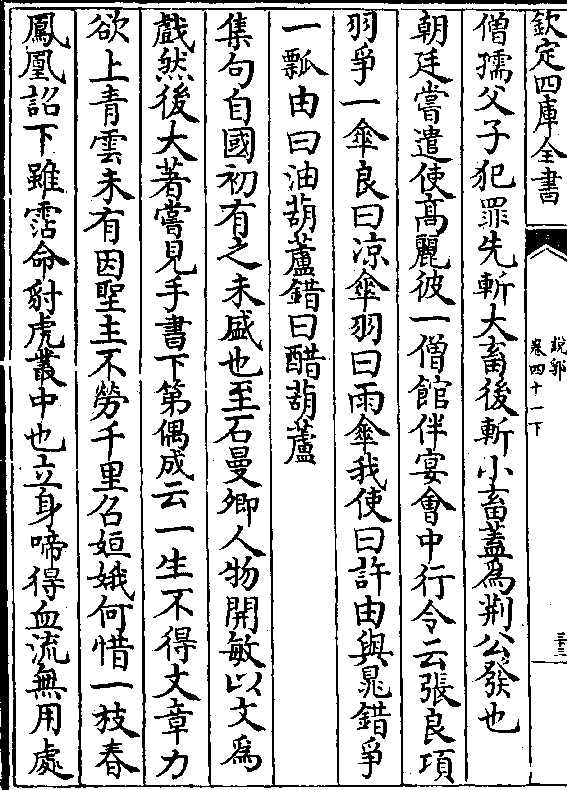 欽定四庫全書
說郛
卷四十一下
三三
僧孺父子犯罪先斬大畜後斬小畜蓋為荆公發也
朝廷嘗遣使髙麗彼一僧館伴宴會中行令云張良項
羽爭一傘良曰凉傘羽曰雨傘我使曰許由與晁錯爭
一瓢由曰油葫蘆錯曰醋葫蘆
集句自國初有之未盛也至石曼卿人物開敏以文為
戲然後大著嘗見手書下第偶成云一生不得文章力
欲上青雲未有因聖主不勞千里召姮娥何惜一枝春
鳳凰詔下雖霑命豺虎叢中也立身啼得血流無用處